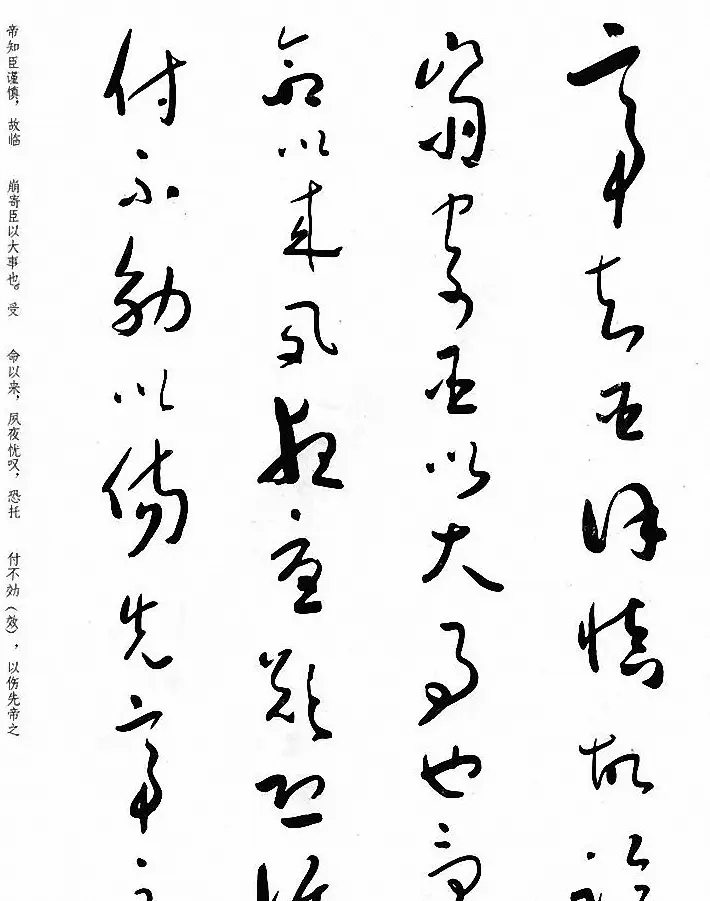 帝知臣谨慎故临
崩寄臣以大事也受
命以来夙夜忧叹恐托
付不効以伤先帝之
帝知臣谨慎，故临 崩寄臣以大事也。受 命以来，夙夜忧叹，恐托 付不効（效），以伤先帝之